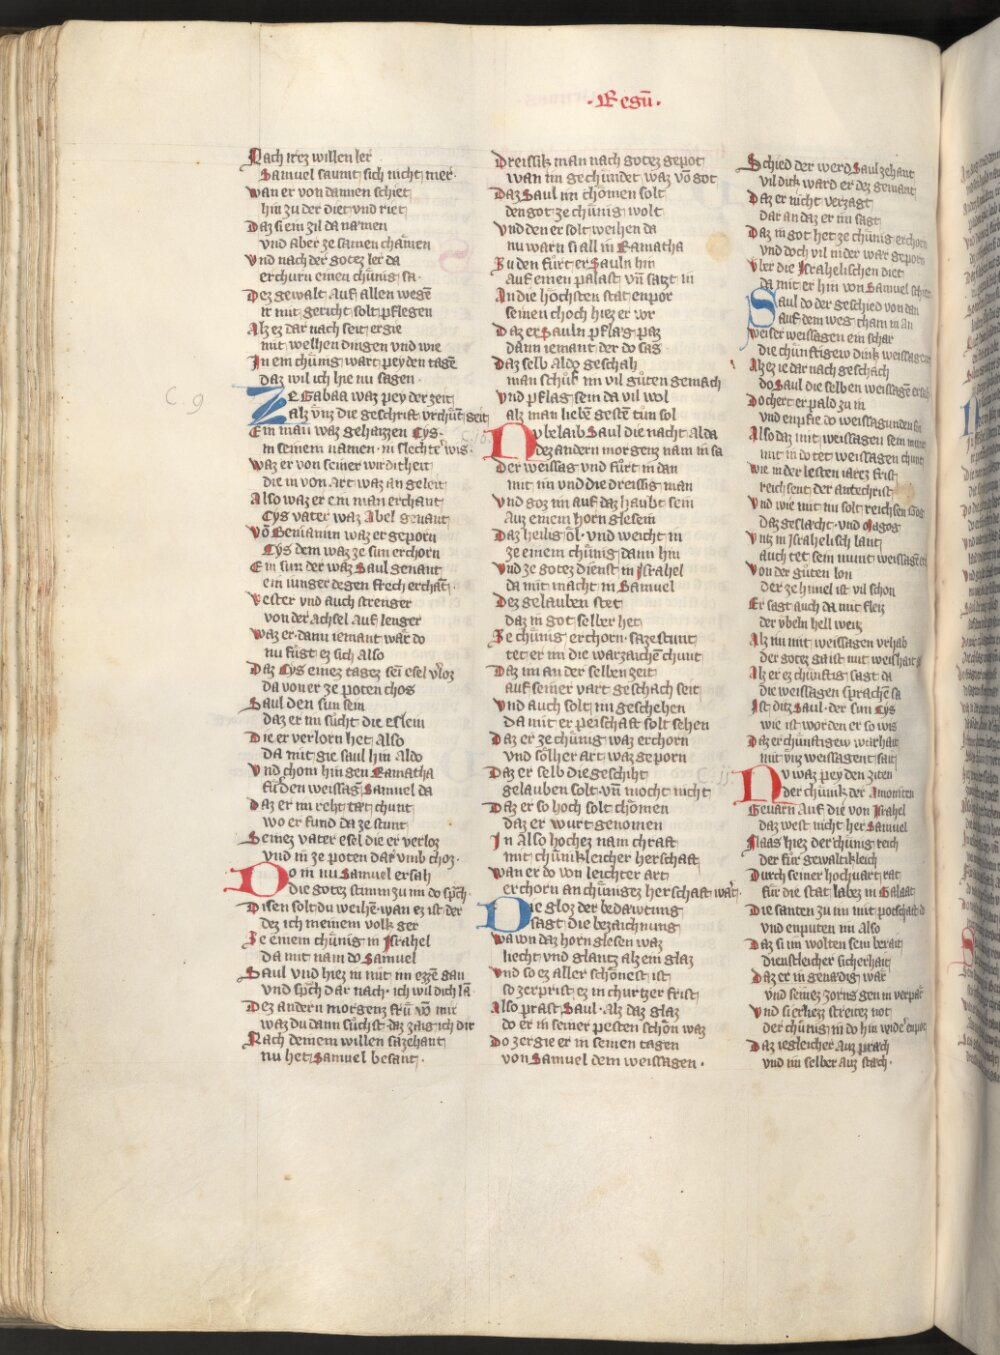 · Regū ·
Nach irez willen ler
Samuel saumt sich nicht mer ·
wan er von dannen schiet
hin zu der diet vnd riet
Daz si em zil da namen
vnd aber ze samen chamen
vnd nach der gotez ler da
erchurn einen chünig sa ·
Dez gewalt Auf allen wegē
it mit gericht solt pflegen
Alz ez dar nach seit ergie
mit welhen dingen vnd wie
In em chünig wart pey den tagē
daz wil ich hie nu sagen ·
c. 9
Ze Gabaa waz pey der zeit
alz vnz die geschrift vrchūt geit
Ein man waz gehaizzen Cys ·
in seinem namen · in slechte wis ·
waz er von seiner wirdicheit
die in von art waz an geleit
Also waz er ein man erchant
Cys vater waz Abel genant
vō Beniamin waz er geporn
Cys dem waz ze sun erchorn
Ein sun der waz Saul genant
ein iunger degen frech erchāt ·
vester vnd auch strenger
von der achsel auf lenger
waz er · dann iemant wär do
nu fügt ez sich also
Daz Cys einez tagez sein esel vloz
da von er ze poten chos
Saul den sun sein
daz er im sücht die eslein
Die er verlorn het also
da mit gie saul hin Aldo
vnd chom hin gen Ramatha
für den weissag Samuel da
Daz er im reht tät chunt
wo er fund da ze stunt
Seinez vater esel die er verloz
vnd in ze poten dar vmb choz ·
Do in nu Samuel ersah
die gotez stimm zu im do sprch
Disen solt du weihē · wan ez ist der
dez ich meinem volk ger
Ze einem chünig in Israhel
da mit nam do Samuel
Saul vnd hiez in mit im ezzē gan
vnd sprch dar nach · ich wil dich lā
Dez andern morgenz frü vō mir
waz du dann süchst daz zaig ich dir
Nach deinem willen sazehant
nu het Samuel besant ·
Dreissik man nach gotez gepot
wan im gechündet waz vō got
Daz Saul im chomen solt
den got ze chünig wolt
vnd den er solt weihen da
nu warn si all in Ramatha
Zu den fürt er Sauln hin
auf einen palast vn̄ satzt in
An die höchsten stat enpor
seinen choch hiez er vor
Daz er Sauln pflag paz
dann iemant der do saz
Daz selb aldo geschah
man schuf im vil güten gemach
vnd pflag sein da vil wol
alz man liebē gestē tun sol
c. 10.
Nv belaib Saul die nacht alda
dez andern morgenz nam in sa
Der weissag vnd fürt in dan
mit im vnd die dreissig man
vnd goz im auf daz haubt sein
auz einem horn glesein
Daz heilig öl · vnd weicht in
ze einem chünig dann hin
vnd ze gotez dienst in Israhel
da mit macht in Samuel
Dez gelauben stet
daz in got selber het
Ze chünig erchorn · saze stunt
tet er im die warzaichē chunt
Daz im an der selben zeit
auf seiner vart geschach seit
vnd auch solt im geschehen
da mit er peischaft solt sehen
Daz er ze chünig waz erchorn
vnd sölher art waz geporn
Daz er selb die geschiht
gelauben solt · vn̄ mocht nicht
Daz er so hoch solt chomen
daz er wurt genomen
In also hochez nam chraft
mit chünikleicher herschaft
wan er do von leichter art
erchorn an chüngez herschaft wart ·
Die gloz der bedawtung
sagt die bezaichnung
wa von daz horn glesen waz
liecht vnd glantz alz ein glaz
vnd so ez aller schönest ist
so zerprist ez in churtzer frist
Also prast Saul · alz daz glaz
do er in seiner pesten schön waz
Do zergie er in seinen tagen
von Samuel dem weissagen ·
Schied der werd Saul zehant
vil dink ward er dez gemant
Daz er nicht verzagt
dar an daz er im sagt
Daz in got het ze chünig erchorn
vnd doch vil nider war geporn
vber die Israhelischen diet
da mit er hin von Samuel schiet
Saul do der geschied von dan
auf dem weg cham in an
weiser weissagen ein schar
die chünftigew dink weissagten
Alz ez ie dar nach geschach
do Saul die selben weissagē ersach
Do chert er pald zu in
vnd enpfie do weissagunden sin
Also daz mit weissagen sein munt
mit in do tet weissagen chunt
wie in der lesten iarez frist
reichsent der antechrist
vnd wie mit im solt reichsen Gog
daz geslächt · vnd Magog
vntz in Israhelisch lant
auch tet sein munt weissagent
von der güten lon
der ze himel ist vil schon
Er sagt auch da mit fleiz
der vbeln hell weitz
Alz nu mit weissagen vrhab
der gotez gaist mit weishait gab
Alz er ez chünftig sagt da
die weissagen sprachē sa
Ist ditz Saul · der sun Cys
wie ist worden er so wis
Daz er chünftigew warhait
mit vnz weissagent sait
11.
Nv waz pey den ziten
der chünik der Amoniten
Gevarn auf die von Israhel
daz west nicht her Samuel
Naas hiez der chünig reich
der für gewaltikleich
Durch seiner hochvart rat
für die stat Iabez in Galaat
Die santen zu im mit potschaft do
vnd enputen im also
Daz si im wolten sein berait
dienstleicher sicherhait
Daz er in genädig wär
vnd seinez zorns gen in verpär
vnd si erliez streitez not
der chünig in do hin wider enpot
Daz iegleicher auz präch
vnd im selber auz stäch ·